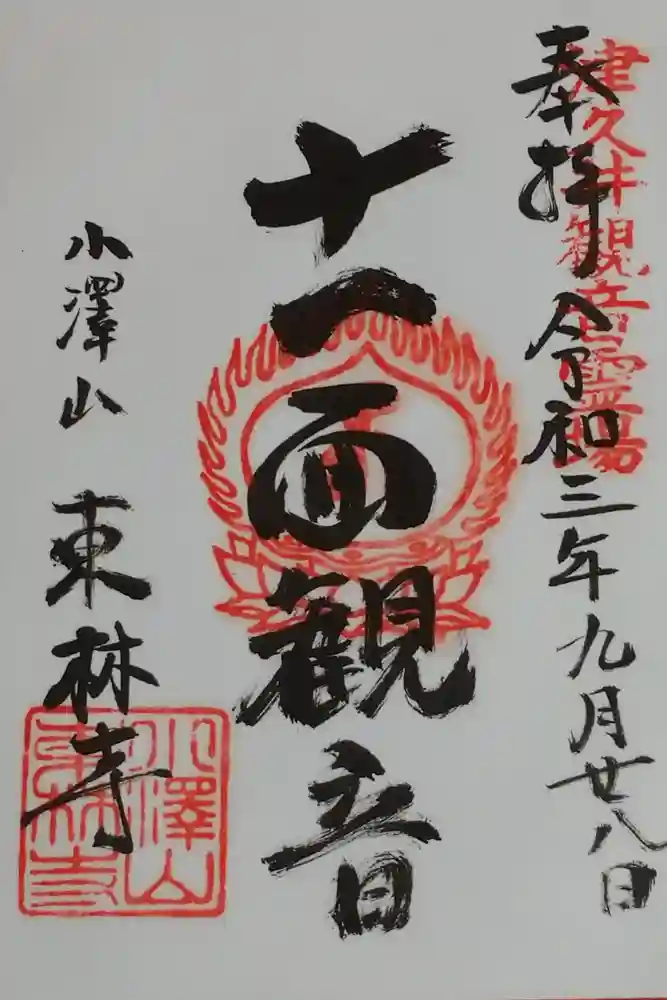 津久井観音霊場
奉拝 令和三年九月廿八日
十一面観音
小澤山 東林寺
小澤山
東林寺